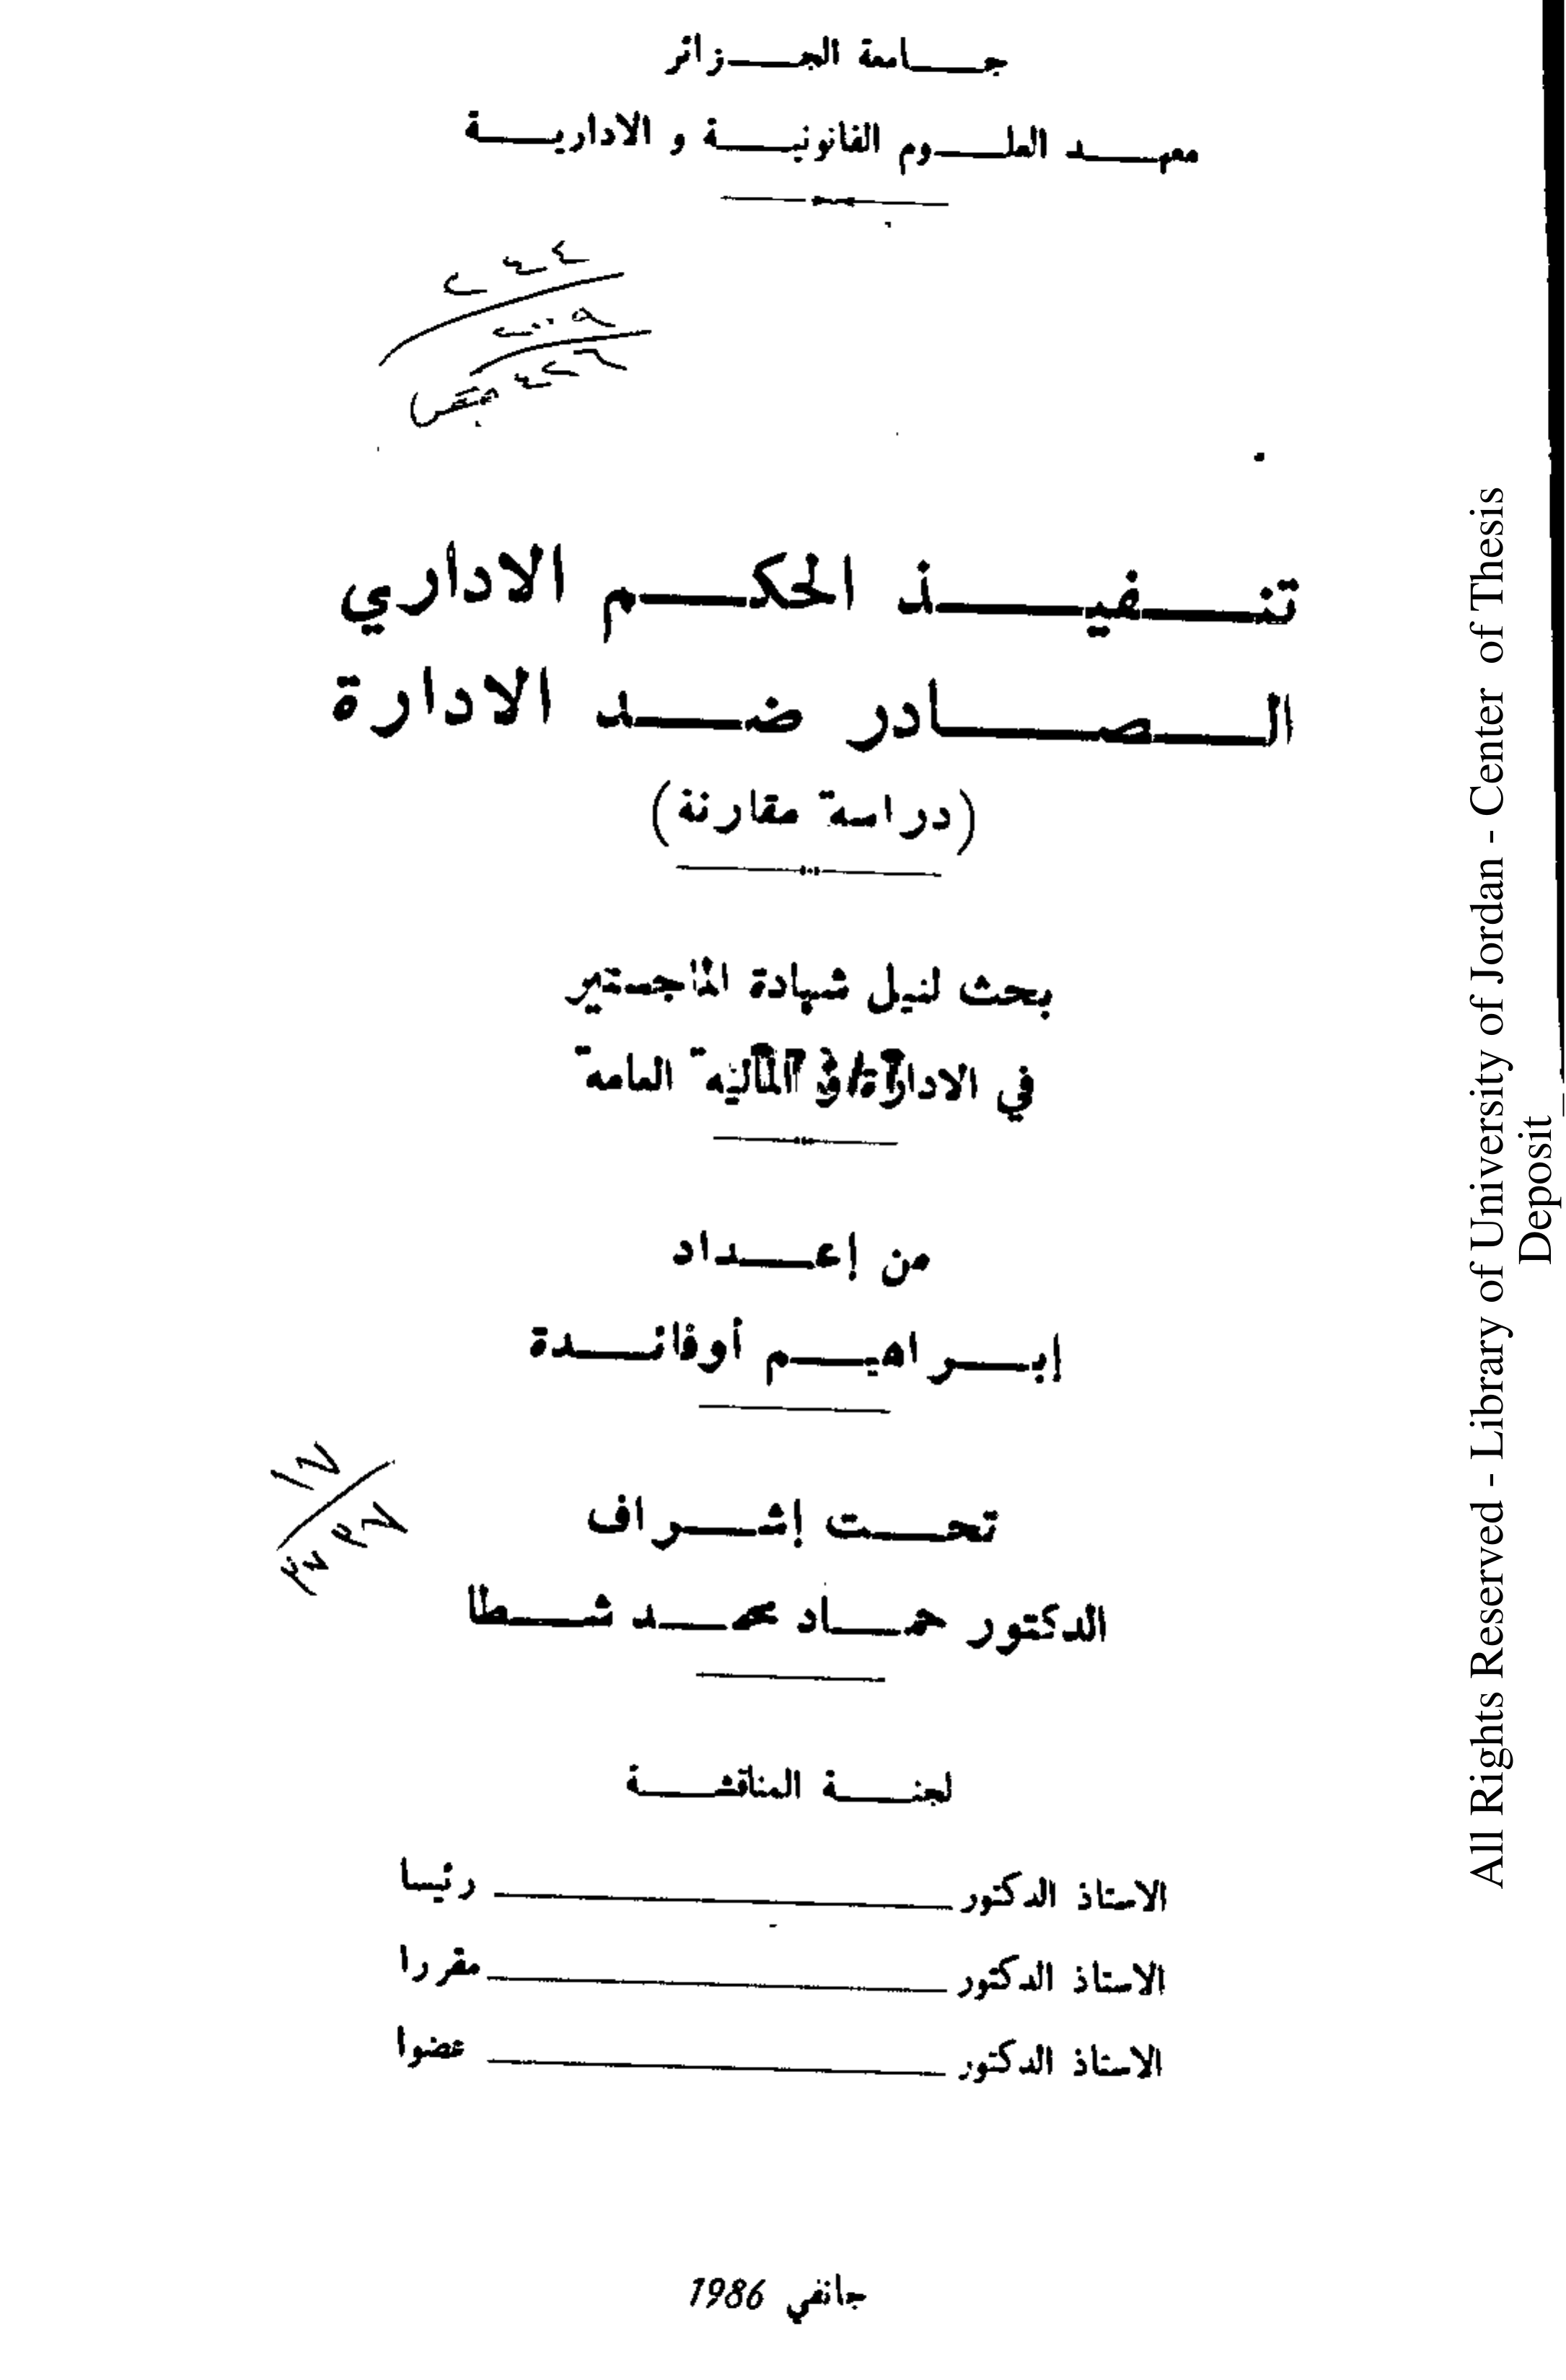 جامعة الجزائر
معهد العلوم القانونية و الادارية
تنفيذ الحكم الاداري
الصادر ضد الادارة
(دراسة مقارنة)
بحث لنيل شهادة الماجستير
في الادارة و المالية العامة
من إعداد
إبراهيم أوفائدة
تحت إشراف
الدكتور حماد محمد شطا
لجنة المناقشة
الاستاذ الدكتور رئيسا
الاستاذ الدكتور مقررا
الاستاذ الدكتور عضوا
جانفي 1986
All Rights Reserved - Library of University of Jordan - Center of Thesis
Deposit